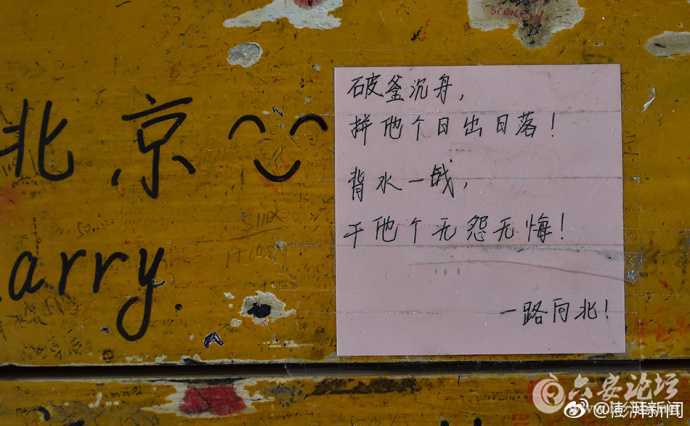 北京
arry.
破釜沉舟,
拼他个日出日落!
背水一战,
干他个无怨无悔!
一路向北!
六安论坛
@澎湃新闻